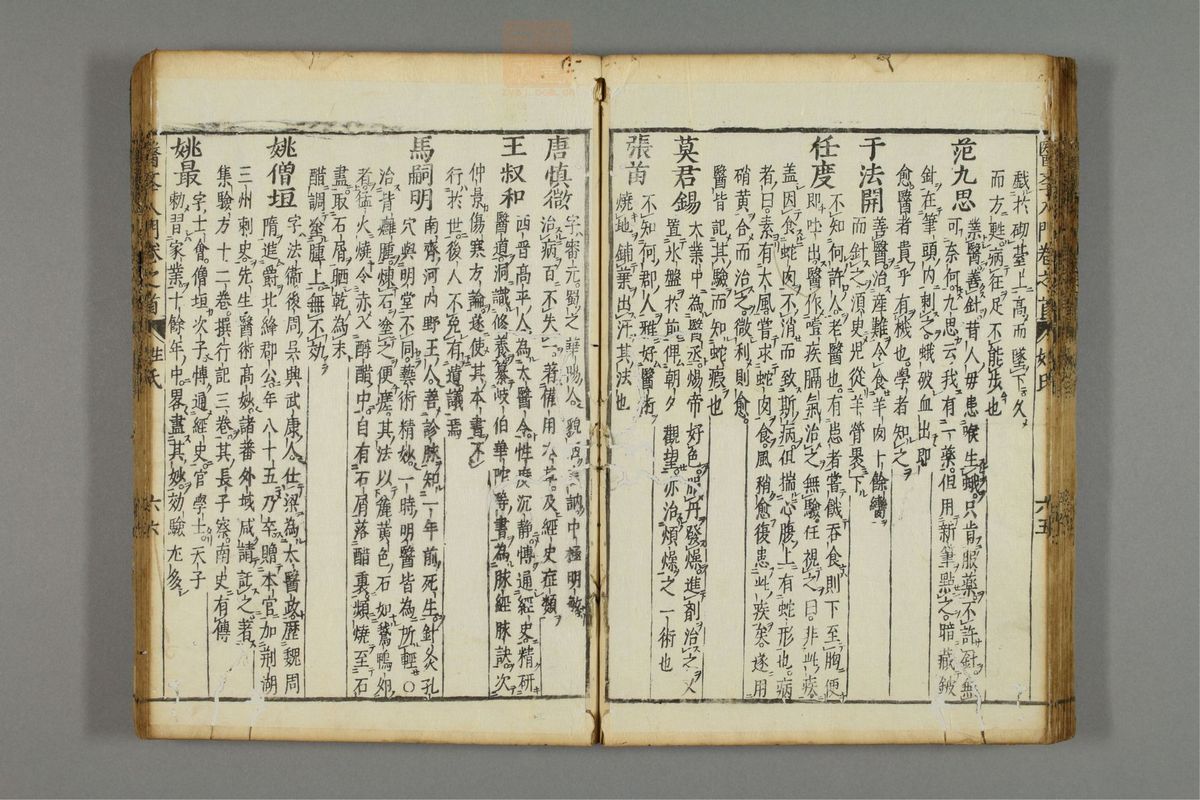 戲於砌臺上高而墜下久
而方甦病在足不能步也
范九思
業醫善針昔人毋患喉生蛾只肯服藥不許針無
可奈何九思云我有一藥但用新筆點之暗藏鈹
針在筆頭內刺之蛾破血出即
愈醫者貴乎有機也學者知之
于法開
善醫治產難令食羊肉十餘臠
而針之須臾兒從羊膋裹下
任度
不知何許人老醫也有患者嘗饑吞食則下至胸便
即吐出醫作噎疾膈氣治之無驗任視之曰非此疾
盖因食蛇肉不消而致斯病但揣心腹上有蛇形也病
者曰素有大風嘗求蛇肉食風稍愈復患此疾矣遂用
硝黃合而治之微利則愈
醫皆記其驗而知蛇瘕也
莫君錫
大業中為醫丞煬帝好色服丹發燥進劑治之又
置氷盤於前俾朝夕觀望亦治煩燥之一術也
張苗
不知何郡人雅好醫術
燒地鋪葉出汗其法也
醫學入門卷之首
姓氏
六五
唐慎微
字審元蜀之華陽人貌陋言訥中極明敏
治病百不失一著備用本草及經史症類
王叔和
西晋高平人為太醫令性度沉靜博通經史精研
醫道洞識修養纂岐伯華佗等書為脉經脉訣次
仲景傷寒方論遂使其本書不
行於世後人不免有遺議焉
馬嗣明
南齊河內野王人善診脉知一年前死生針灸孔
穴與明堂不同藝術精妙一時明醫皆為所輕○
治背癰腫煉石塗之便瘥其法以麄黃色石如鵝鴨卵
者猛火燒令赤入醇醋中自有石屑落醋裏頻燒至石
盡取石屑晒乾為末
醋調塗腫上無不効
姚僧垣
字法衛後周吳與武康人仕梁為太醫政歷魏周
隋進爵北絳郡公年八十五乃卒贈本官加荆湖
三州刺史先生醫術高妙諸番外域咸請託之著
集驗方十二卷撰行記三卷其長子察南史有傳
姚最
字士會僧垣次子博通經史官學士天子
勑習家業十餘年中畧盡其妙効驗尤多
醫學入門卷之首
姓氏
六六